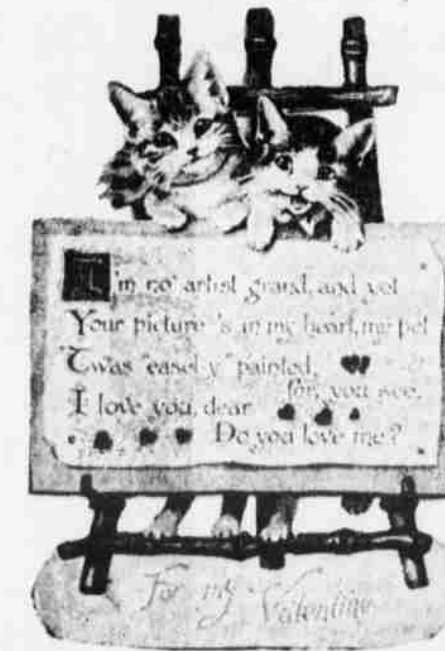 I'm no artist grand, and yet
Your picture 's in my heart, my pet
'Twas "easel-y" painted,
for, you see,
I love you, dear
Do you love me?
For my Valentine